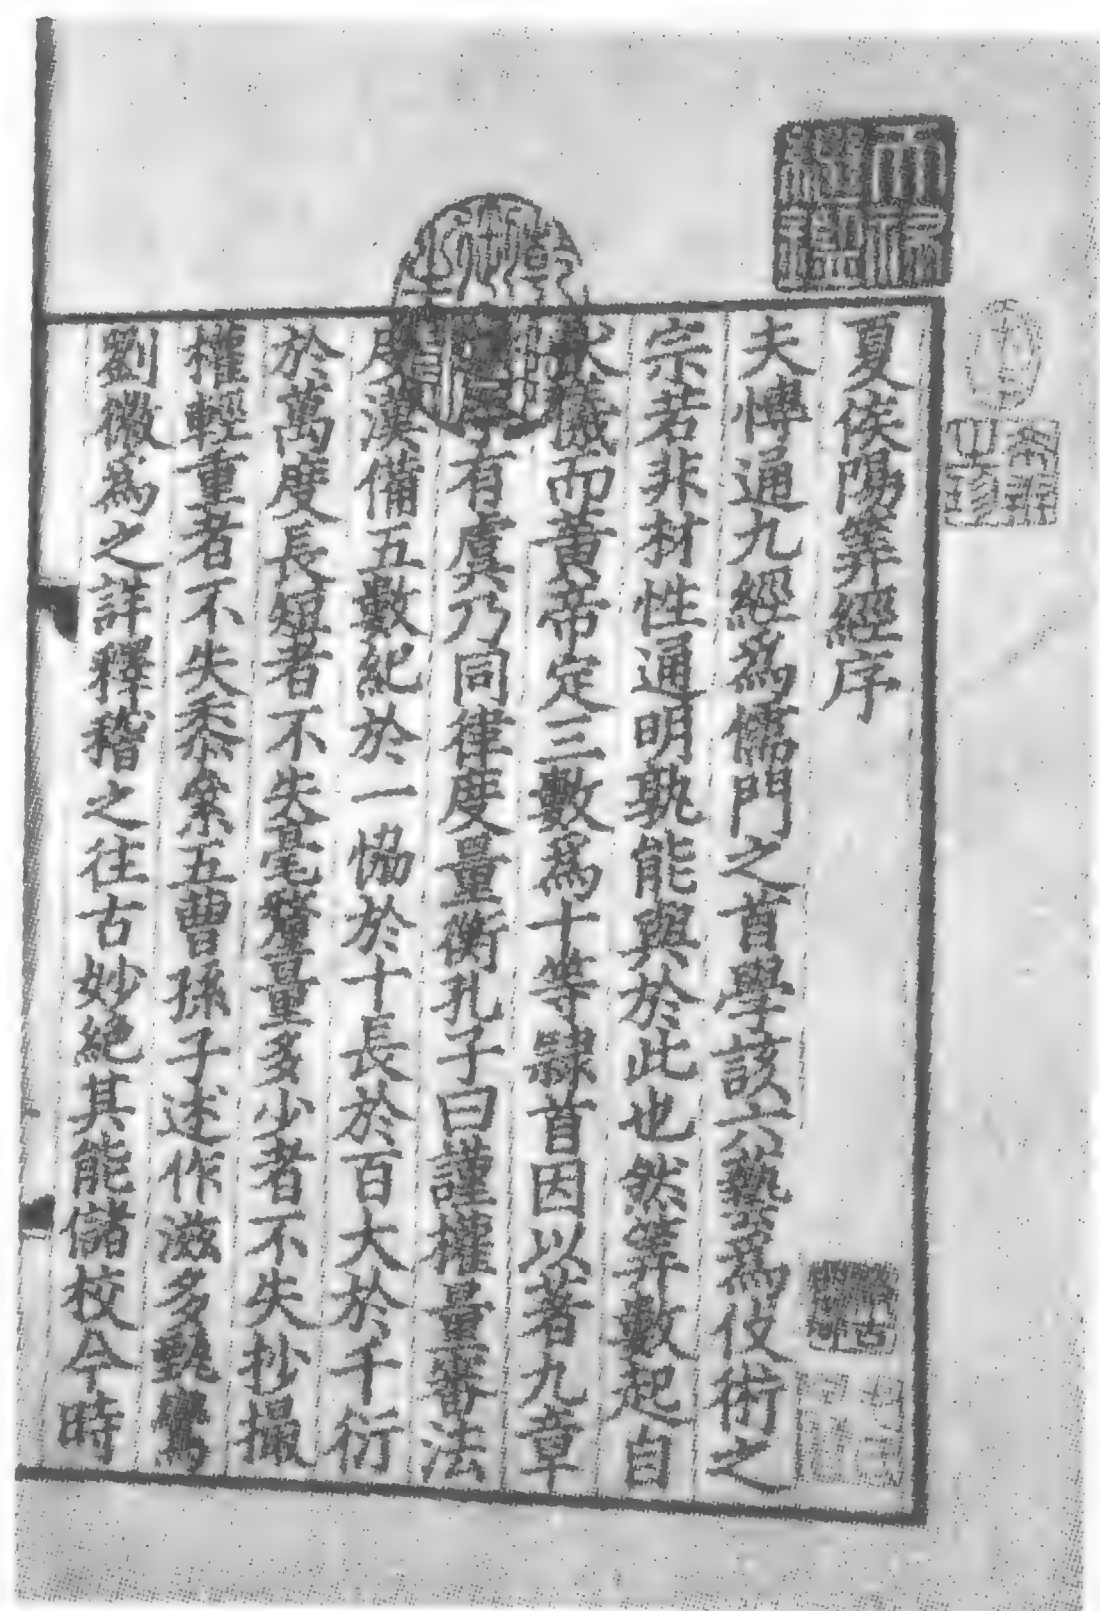 夏侯陽筭經序
夫博通九經為儒門之首學該六藝爲伎術之
宗若非材性通明孰能與於此也然筭數起自
伏羲而黃帝定三數為十等隸首因以著九章
有虞乃同律度量衡孔子曰謹權量審法
度漢備五數紀於一協於十長於百大於千衍
於萬度長短者不失毫釐量多少者不失抄撮
權輕重者不失黍絫五曹孫子述作滋多甄鸞
劉徽為之詳釋稽之往古妙絕其能儲校今時